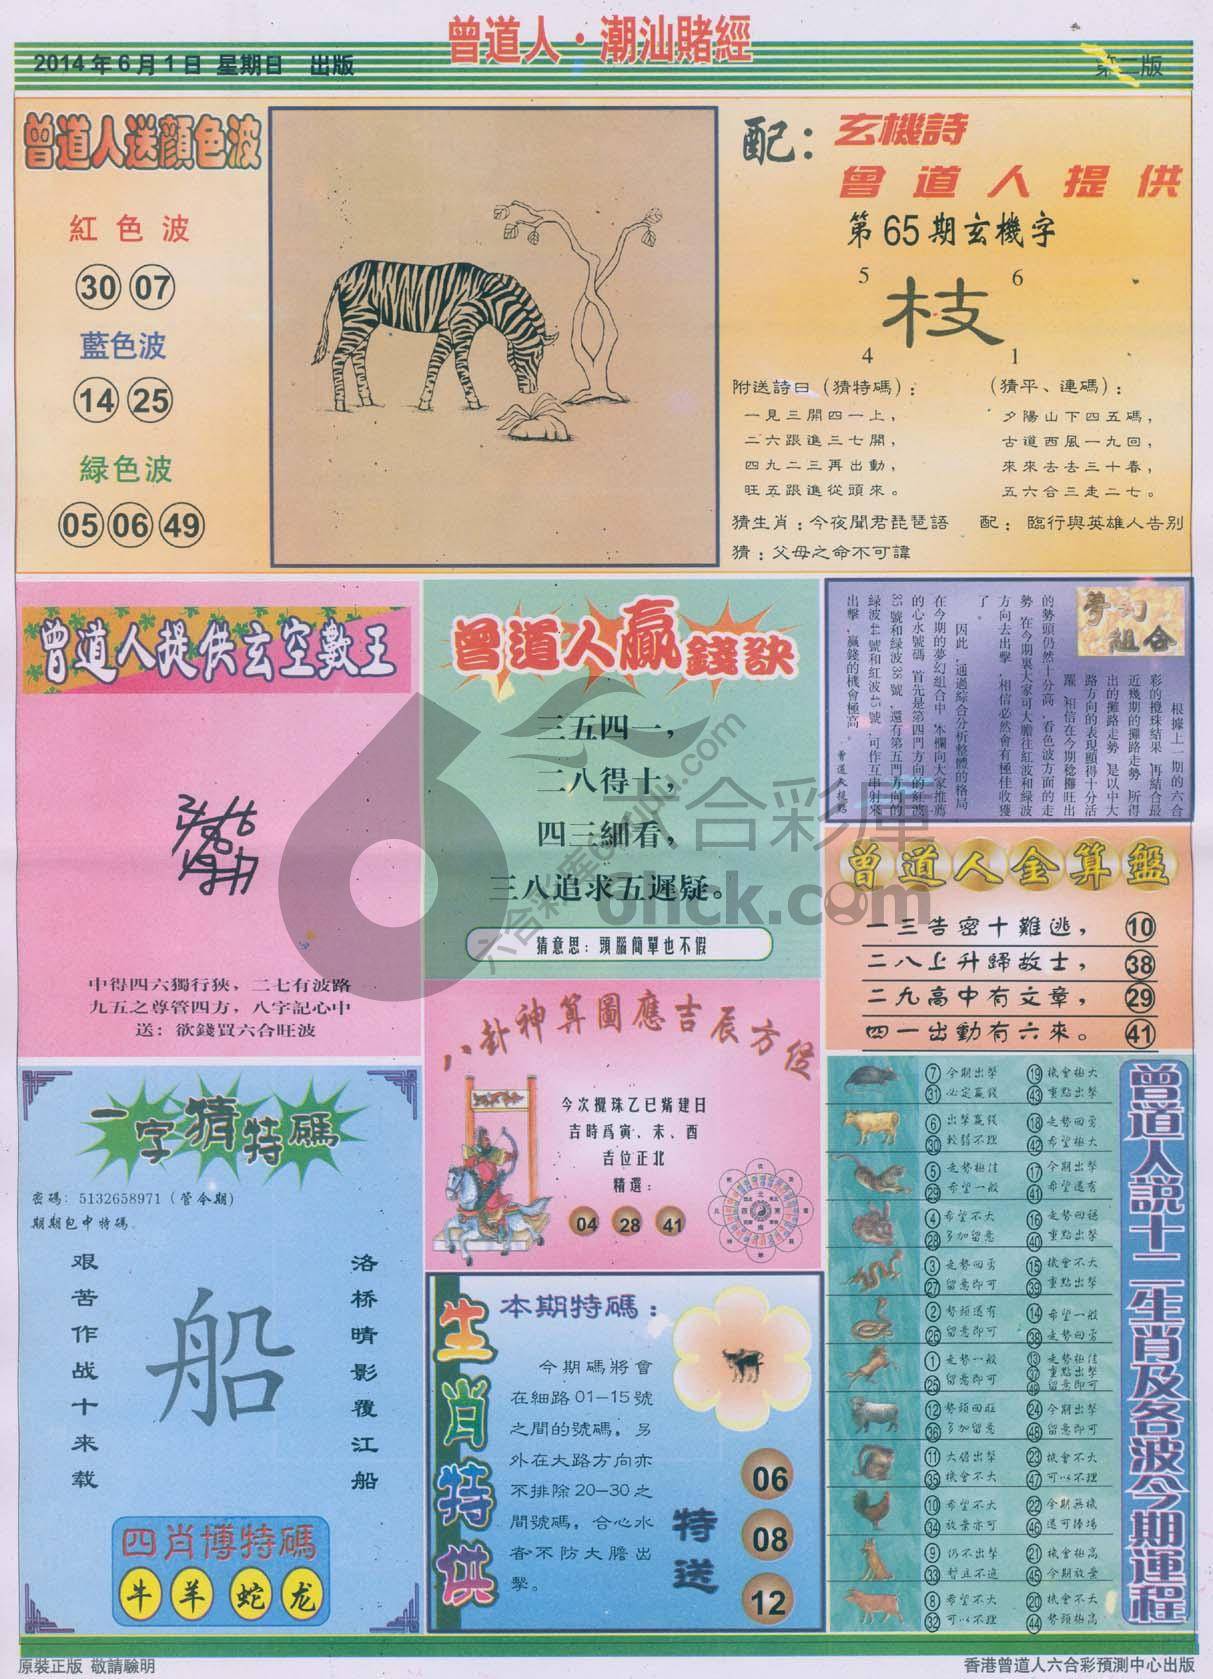 曾道人·潮汕賭經
2014年6月1日 星期日 出版
第二版
曾道人送顔色波
紅色波
30 07
藍色波
14 25
緑色波
05 06 49
配：
玄機詩
曾道人提供
第65期玄機字
5 6
枝
4 1
附送詩曰（猜特碼）：
一見三開四一上，
二六跟進三七開，
四九二三再出動，
旺五跟進從頭來。
（猜平、連碼）：
夕陽山下四五碼，
古道西風一九回，
來來去去三十春，
五六合三走二七。
猜生肖：今夜聞君琵琶語 配：臨行與英雄人告別
猜：父母之命不可諱
曾道人提供玄空數王
中得四六獨行狹，二七有波路
九五之尊管四方，八字記心中
送：欲錢買六合旺波
曾道人贏錢訣
三五四一，
二八得十，
四三細看，
三八追求五遲疑。
猜意思：頭腦簡單也不假
夢幻組合
根據上一期的六合
彩的攪珠結果，再結合最
近幾期的攤路走勢，所得
出的攤路走勢，是以中大
路方向的表現顯得十分活
躍，相信在今期稔攤旺出
的勢頭仍然十分高，看色波方面的走
勢，在今期裏大家可大膽往紅波和綠波
方向去出擊，相信必然會有極佳收獲
了。
因此，通過綜合分析整體的格局，
在今期的夢幻組合中，本欄向大家推薦
的心水號碼，首先是第四門方向的紅波
35號和綠波38號，還有第五門方向的
綠波44號和紅波45號，可作互串射來
出擊，贏錢的機會極高。
曾道人金算盤
一三告密十難逃， 10
二八上升歸故土， 38
二九高中有文章， 29
四一出動有六來。 41
八卦神算圖應吉辰方位
今次攪珠乙巳觜建日
吉時爲寅、未、酉
吉位正北
精選：
04 28 41
一字猜特碼
密碼：5132658971（管今期）
期期包中特碼。
艰苦作战十来载
船
洛桥晴影覆江船
四肖博特碼
牛 羊 蛇 龙
生肖特供
本期特碼：
今期碼將會
在細路01—15號
之間的號碼，另
外在大路方向亦
不排除20—30之
間號碼，合心水
者不防大膽出
擊。
特送
06
08
12
曾道人説十二生肖及各波今期運程
7 今期出擊 19 機會極大
31 必定贏錢 43 重點出擊
6 出擊贏錢 18 走勢回勇
30 較弱不理 42 希望極大
5 走勢極佳 17 今期出擊
29 希望一般 41 希望還有
4 希望不大 16 走勢回穩
28 多加留意 40 重點出擊
3 走勢回勇 15 機會不大
27 留意即可 39 重點出擊
2 勢頭還有 14 希望一般
26 留意即可 38 走勢回勇
1 走勢一般 13 走勢極佳
25 留意即可 37 重點出擊
49 留意即可
12 勢頭回旺 24 今期出擊
36 多加留意 48 留意即可
11 大膽出擊 23 機會不大
35 機會不大 47 可以不理
10 希望不大 22 今期無機
34 放棄亦可 46 還可捧場
9 仍不出擊 21 機會極高
33 暫且不追 45 今期放棄
8 希望不大 20 機會不大
32 可以不理 44 勢頭極高
六合彩庫
6lick.com
原裝正版 敬請驗明
香港曾道人六合彩預測中心出版